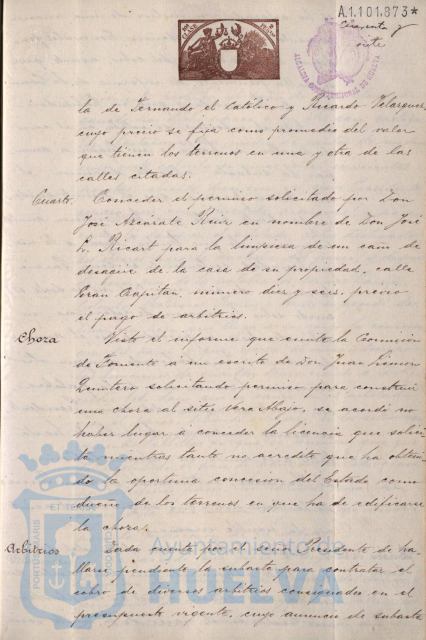 A.1.101.873*
Cincuenta y
siete
la de Fernando el Católico y Ricardo Velazquez,
cuyo precio se fija como promedio del valor
que tienen los terrenos en una y otra de las
calles citadas.
Cuarto. Conceder el permiso solicitado por Don
José Azcárate Ruiz en nombre de Don José
L. Ricart para la limpieza de un caño de
desagüe de la casa de su propiedad, calle
Gran Capitan, número diez y seis, previo
el pago de arbitrios.
Choza Visto el informe que emite la Comision
de Fomento á un escrito de Don Juan Limon
Quintero solicitando permiso para construir
una choza al sitio Vera Abajo, se acordó no
haber lugar á conceder la licencia que solici-
ta mientras tanto no acredite que ha obteni-
do la oportuna concesion del Estado como
dueño de los terrenos en que ha de edificarse
la choza.
Arbitrios Dada cuenta por el señor Presidente de ha-
llarse pendiente la subasta para contratar el
cobro de diversos arbitrios consignados en el
presupuesto vigente, cuyo anuncio de subasta
Ayuntamiento de
HUELVA